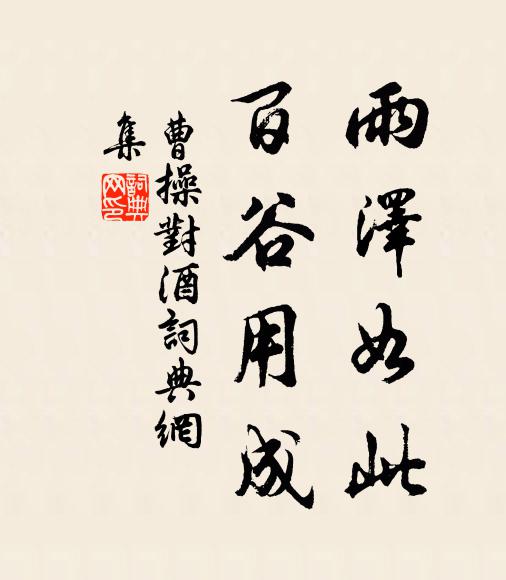 雨澤如此
百谷用成
曹操對酒詞典網
集
詞典
网印